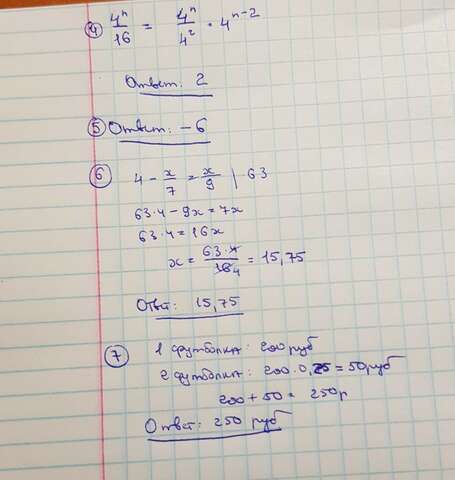 ④ 4ⁿ/16 = 4ⁿ/4² · 4ⁿ⁻²
Ответ: 2
⑤ Ответ: -6
⑥ 4 - x/7 = x/9 | 63
63·4 - 9x = 7x
63·4 = 16x
x = 63·4/164 = 15,75
Ответ: 15,75
⑦ 1 футболка: 200 руб
2 футболка: 200·0,25 = 50 руб
200 + 50 = 250 р
Ответ: 250 руб